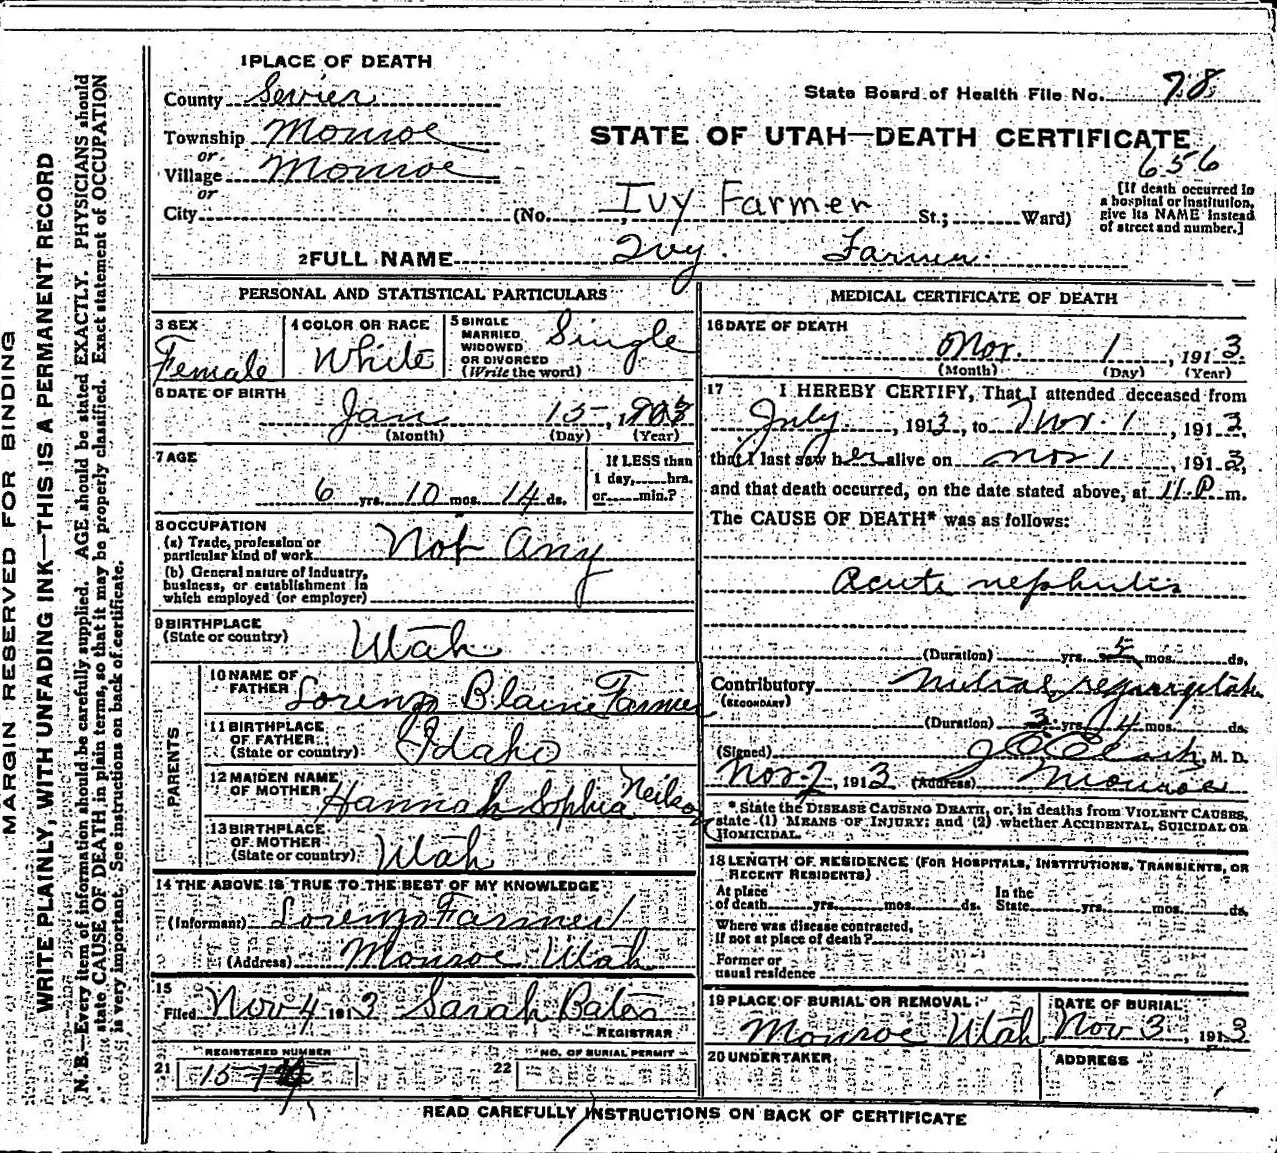 1 PLACE OF DEATH
County Sevier
Township Monroe
or
Village Monroe
or
City (No. Ivy Farmer St.; Ward)
State Board of Health File No. 78
STATE OF UTAH—DEATH CERTIFICATE
656
[If death occurred in
a hospital or institution,
give its NAME instead
of street and number.]
2 FULL NAME Ivy Farmer
PERSONAL AND STATISTICAL PARTICULARS
3 SEX
Female
4 COLOR OR RACE
White
5 SINGLE
MARRIED
WIDOWED
OR DIVORCED
(Write the word)
Single
6 DATE OF BIRTH
Jan 15, 1903
(Month) (Day) (Year)
7 AGE
6 yrs. 10 mos. 14 ds.
If LESS than
1 day, hrs.
or min.?
8 OCCUPATION
(a) Trade, profession or
particular kind of work Not Any
(b) General nature of industry,
business, or establishment in
which employed (or employer)
9 BIRTHPLACE
(State or country) Utah
PARENTS
10 NAME OF
FATHER Lorenzo Blaine Farmer
11 BIRTHPLACE
OF FATHER
(State or country) Idaho
12 MAIDEN NAME
OF MOTHER Hannah Sophia Neilson
13 BIRTHPLACE
OF MOTHER
(State or country) Utah
14 THE ABOVE IS TRUE TO THE BEST OF MY KNOWLEDGE
(Informant) Lorenzo Farmer
(Address) Monroe Utah
15
Filed Nov 4 1913 Sarah Bates
REGISTRAR
REGISTERED NUMBER
21 15
NO. OF BURIAL PERMIT
22
MEDICAL CERTIFICATE OF DEATH
16 DATE OF DEATH
Nov. 1, 1913
(Month) (Day) (Year)
17 I HEREBY CERTIFY, That I attended deceased from
July, 1913, to Nov. 1, 1913,
that I last saw her alive on Nov 1, 1913,
and that death occurred, on the date stated above, at 11 P m.
The CAUSE OF DEATH* was as follows:
Acute nephritis
(Duration) yrs. 5 mos. ds.
Contributory Mitral regurgitation
(SECONDARY)
(Duration) 3 yrs. 4 mos. ds.
(Signed) M. D.
Nov. 2, 1913 (Address) Monroe
* State the DISEASE CAUSING DEATH, or, in deaths from VIOLENT CAUSES,
state (1) MEANS OF INJURY; and (2) whether ACCIDENTAL, SUICIDAL OR
HOMICIDAL.
18 LENGTH OF RESIDENCE (FOR HOSPITALS, INSTITUTIONS, TRANSIENTS, OR
RECENT RESIDENTS)
At place
of death yrs. mos. ds.
In the
State yrs. mos. ds.
Where was disease contracted,
if not at place of death?
Former or
usual residence
19 PLACE OF BURIAL OR REMOVAL
Monroe Utah
DATE OF BURIAL
Nov 3, 1913
20 UNDERTAKER
ADDRESS
READ CAREFULLY INSTRUCTIONS ON BACK OF CERTIFICATE
MARGIN RESERVED FOR BINDING
WRITE PLAINLY, WITH UNFADING INK—THIS IS A PERMANENT RECORD
N. B.—Every item of information should be carefully supplied. AGE should be stated EXACTLY. PHYSICIANS should
state CAUSE OF DEATH in plain terms, so that it may be properly classified. Exact statement of OCCUPATION
is very important. See instructions on back of certificate.